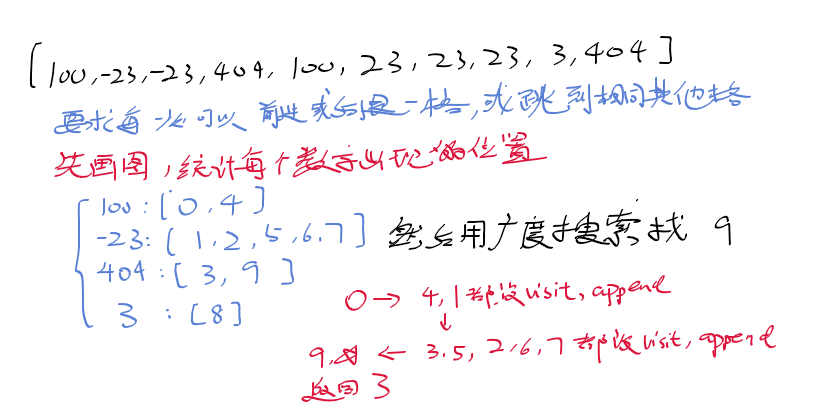 [100,-23,-23,404,100,23,23,23,3,404]
要求每次可以前进或后退一格,或跳到相同其他格
先画图,统计每个数字出现的位置
100:[0,4]
-23:[1,2,5,6,7]
404:[3,9]
3:[8]
然后用广度搜索找 9
0→ 4,1都没visit,append
↓
9, ← 3.5,2,6,7都没visit,append
返回3